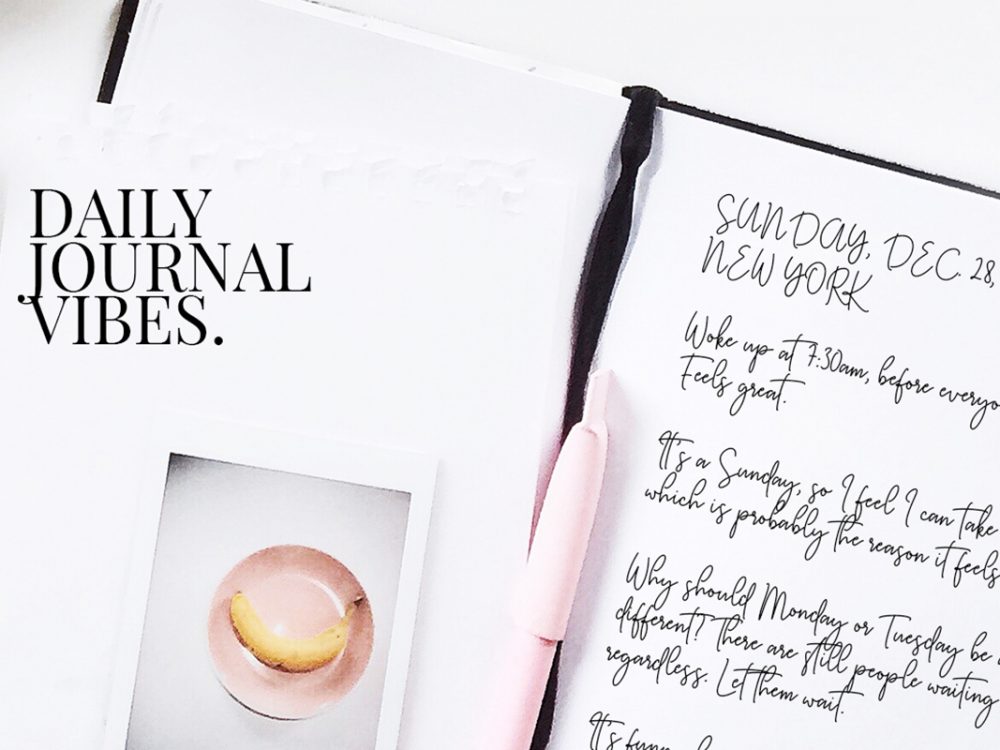 DAILY
JOURNAL
VIBES.
SUNDAY, DEC. 28,
NEW YORK
Woke up at 7:30am, before
Feels great.
It's a Sunday, so I feel I can take
which is probably the reason it feels
Why should Monday or Tuesday be
different? There are still people waiting
regardless. Let them wait.
It's